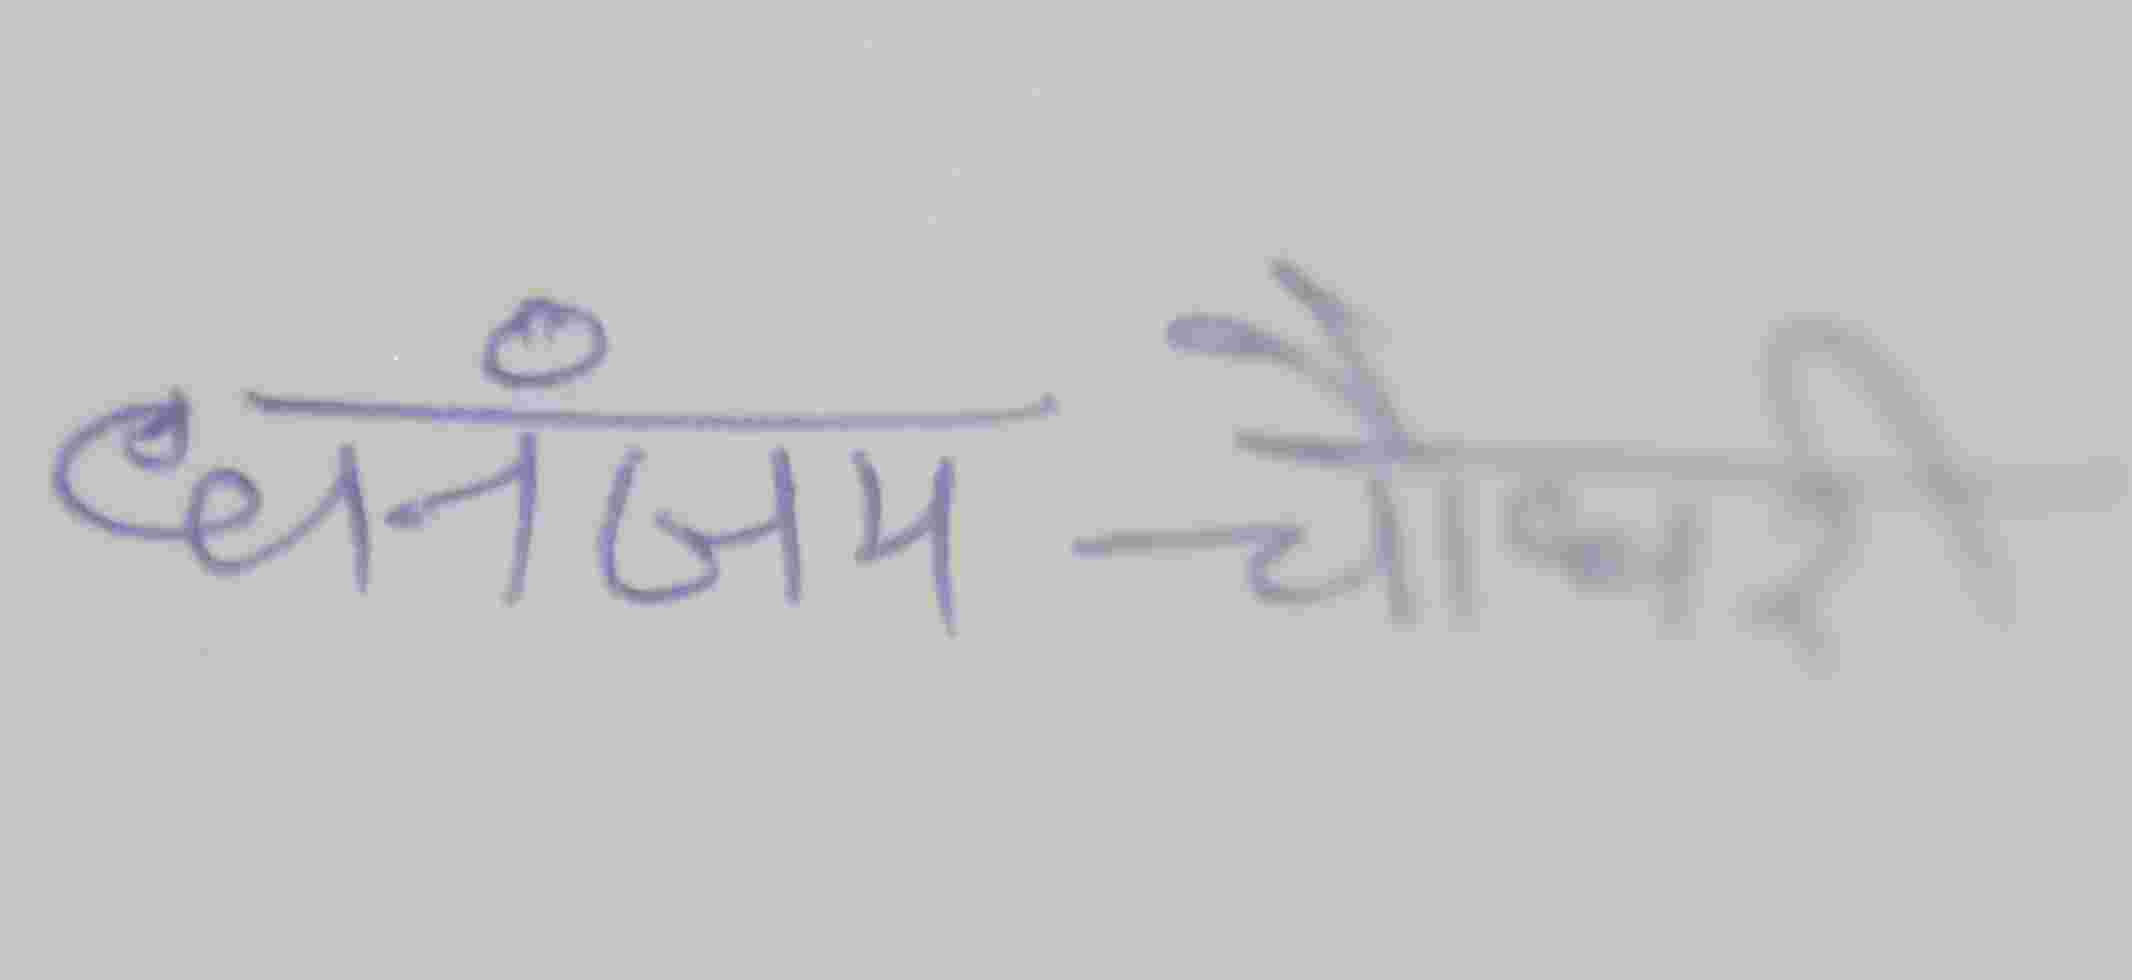 धनंजय चौधरी